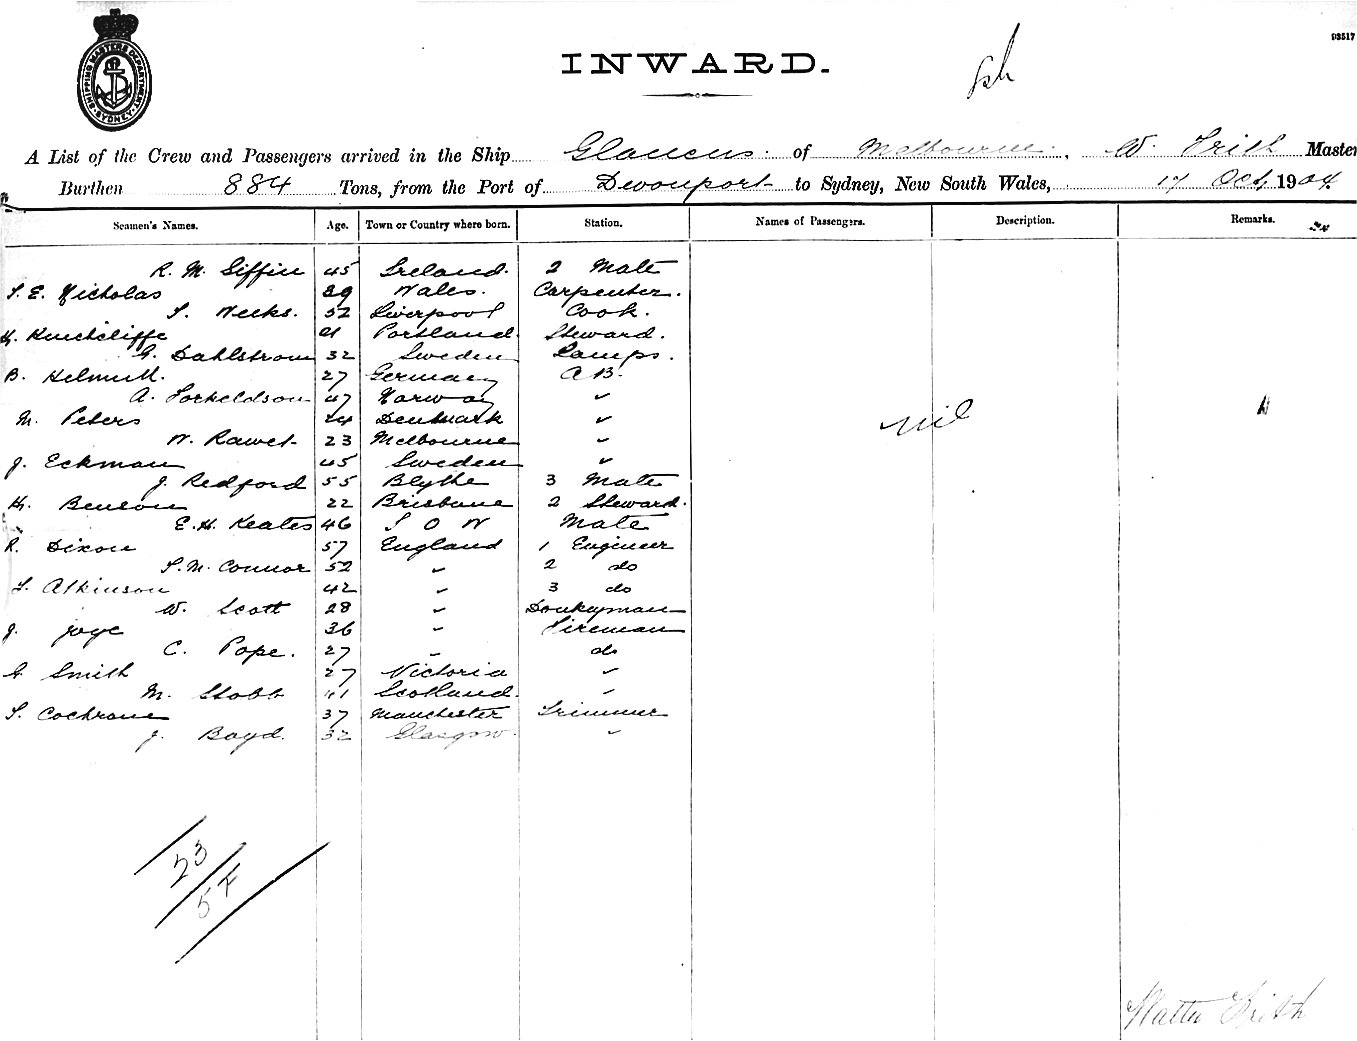 SHIPPING MASTERS DEPARTMENT SYDNEY
93517
INWARD.
A List of the Crew and Passengers arrived in the Ship Glaucus of Melbourne, W. Frith Master
Burthen 884 Tons, from the Port of Devonport to Sydney, New South Wales, 17 Oct, 1904
Seamen's Names. Age. Town or Country where born. Station. Names of Passengers. Description. Remarks.
R. M. Giffin 45 Ireland. 2 Mate
E. Nicholas 29 Wales. Carpenter.
Weeks. 52 Liverpool Cook.
H. Hinchcliffe 21 Portland Steward.
G. Dahlstrom 32 Sweden Lamps.
B. Helmuth. 27 Germany A B.
A. Torkeldson 47 Norway "
M. Peters 24 Denmark "
W. Rawet 23 Melbourne "
J. Eckman 45 Sweden "
J. Redford 55 Blythe 3 Mate
H. Benson 22 Brisbane 2 Steward.
E. H. Keates 46 Mate
R. Dixon 57 England 1 Engineer
Connor 52 " 2 do
Atkinson 42 " 3 do
W. Scott 28 " Donkeyman
J. Joyce 36 " Fireman
C. Pope. 27 " do
G. Smith 27 Victoria "
M. Stobb 41 Scotland. "
Cochrane 37 Manchester Trimmer
J. Boyd. 32 Glasgow. "
nil
23
57
Walter Frith